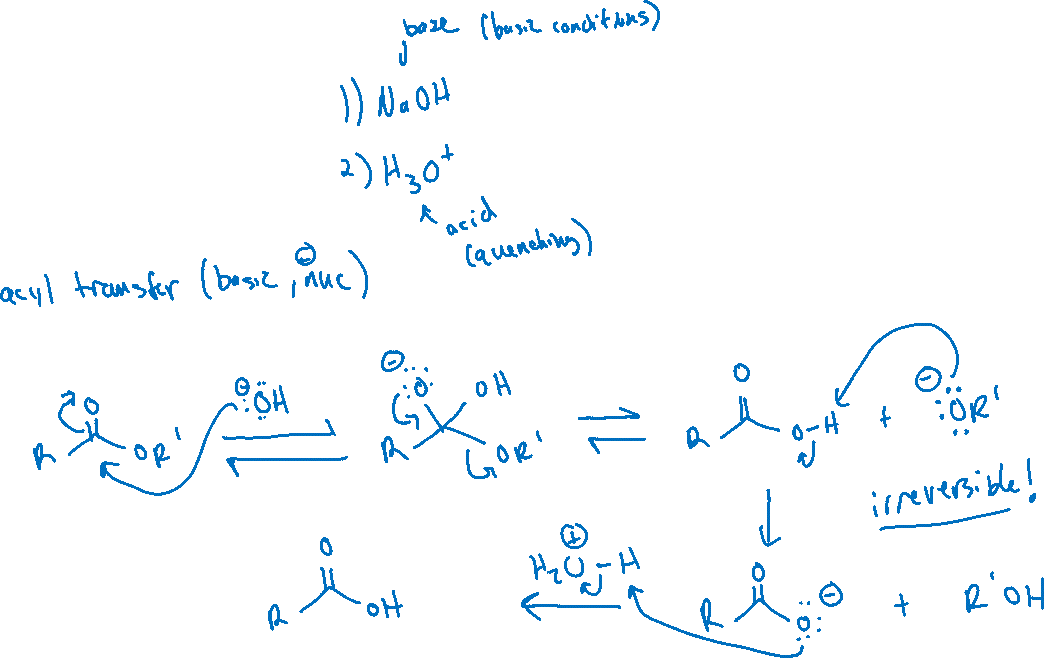 base (basic conditions)
1) NaOH
2) H₃O⁺
acid
(quenching)
acyl transfer (basic, ⊖ nuc)
O R OR' ⊖ :ÖH ⊖ :O: OH R OR' O R O-H + ⊖ :ÖR'
irreversible!
O R OH H₂O⊕-H O R O: ⊖ + R'OH